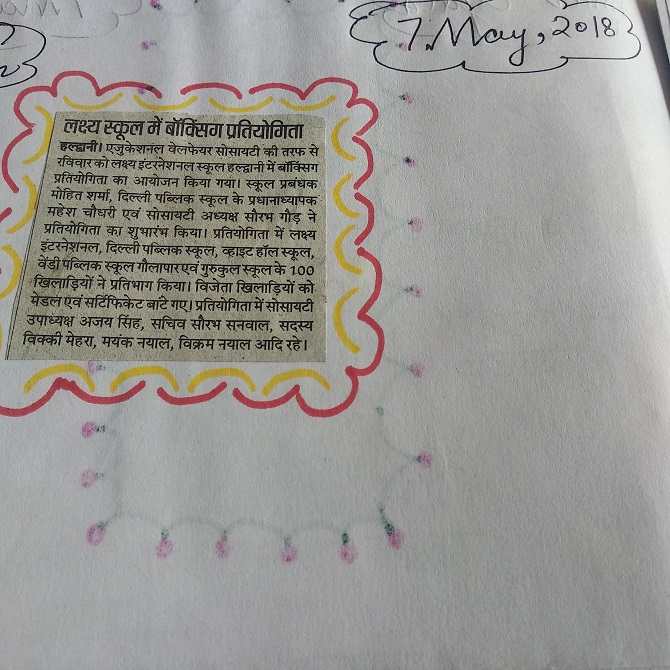 7 May, 2018
लक्ष्य स्कूल में बॉक्सिंग प्रतियोगिता
हल्द्वानी। एजुकेशनल वेलफेयर सोसायटी की तरफ से
रविवार को लक्ष्य इंटरनेशनल स्कूल हल्द्वानी में बॉक्सिंग
प्रतियोगिता का आयोजन किया गया। स्कूल प्रबंधक
मोहित शर्मा, दिल्ली पब्लिक स्कूल के प्रधानाध्यापक
महेश चौधरी एवं सोसायटी अध्यक्ष सौरभ गौड़ ने
प्रतियोगिता का शुभारंभ किया। प्रतियोगिता में लक्ष्य
इंटरनेशनल, दिल्ली पब्लिक स्कूल, व्हाइट हॉल स्कूल,
वेंडी पब्लिक स्कूल गौलापार एवं गुरुकुल स्कूल के 100
खिलाड़ियों ने प्रतिभाग किया। विजेता खिलाड़ियों को
मेडल एवं सर्टिफिकेट बांटे गए। प्रतियोगिता में सोसायटी
उपाध्यक्ष अजय सिंह, सचिव सौरभ सनवाल, सदस्य
विक्की मेहरा, मयंक नयाल, विक्रम नयाल आदि रहे।